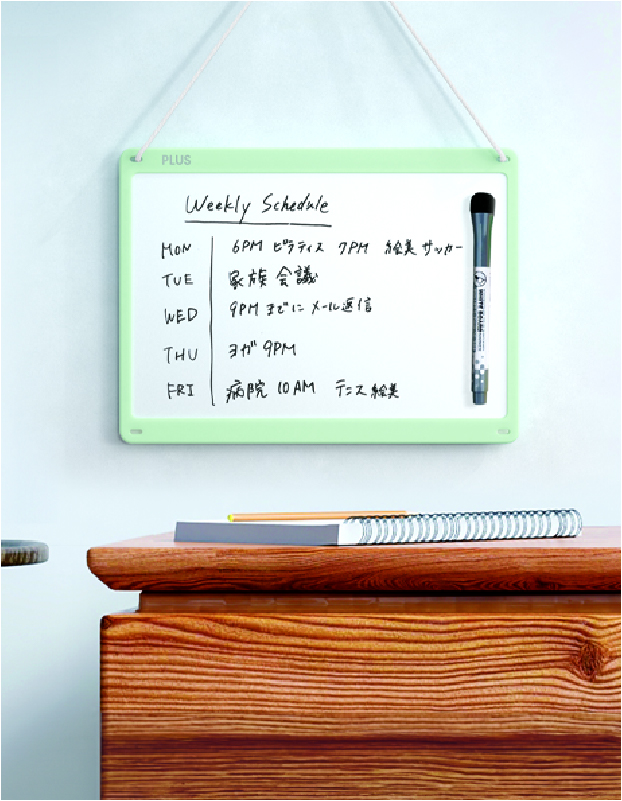 PLUS
Weekly Schedule
MON 6PM ピラティス 7PM 絵美 サッカー
TUE 家族会議
WED 9PM までに メール返信
THU ヨガ 9PM
FRI 病院 10AM テニス 絵美